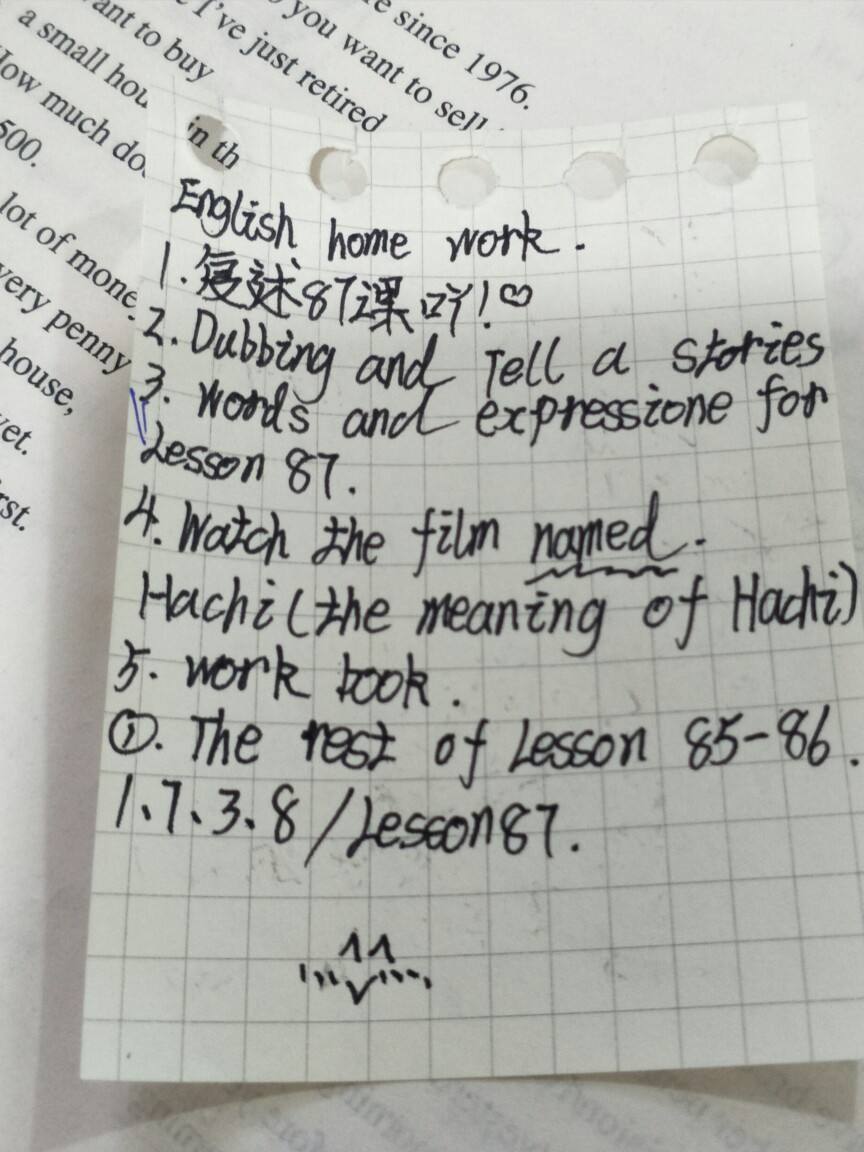 e since 1976.
you want to sell
I've just retired
ant to buy
a small hou
in th
How much do
500.
lot of mone
very penny
house,
yet.
rst.
English home work.
1.复述87课吖!♡
2. Dubbing and Tell a stories
3. words and expressione for
Lesson 87.
4. Watch the film named.
Hachi(the meaning of Hachi)
5. work book.
①. The rest of Lesson 85-86.
1、7、3、8/Lesson87.